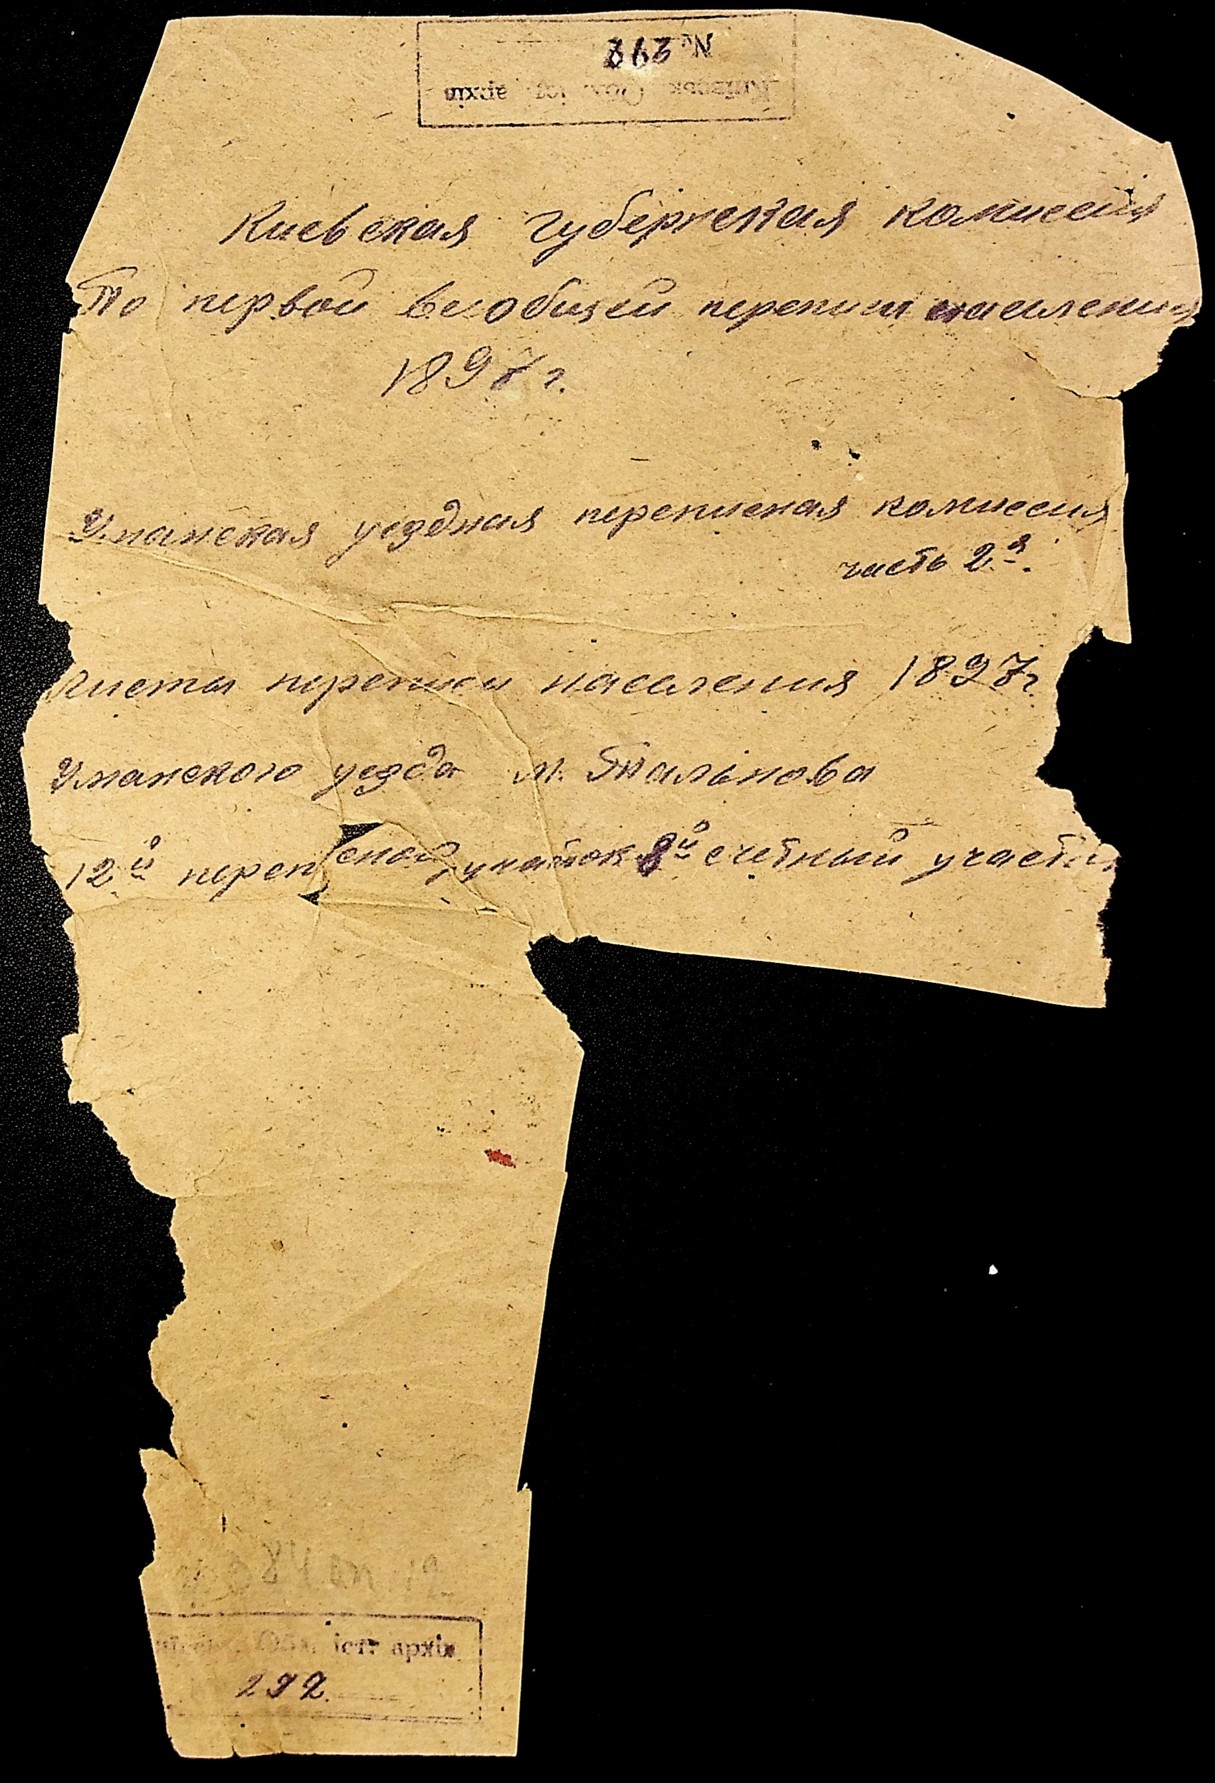 № 292
Київськ Обл. іст архів
Киевская губернская комиссия
По первой всеобщей переписи населения
1897 г.
Уманская уездная переписная комиссия
часть 2я.
Листы переписи населения 1897г
Уманского уезда м. Тальнова
12й переписной участок 8й счетный участок
84 оп 12
Обл. іст архів
292.